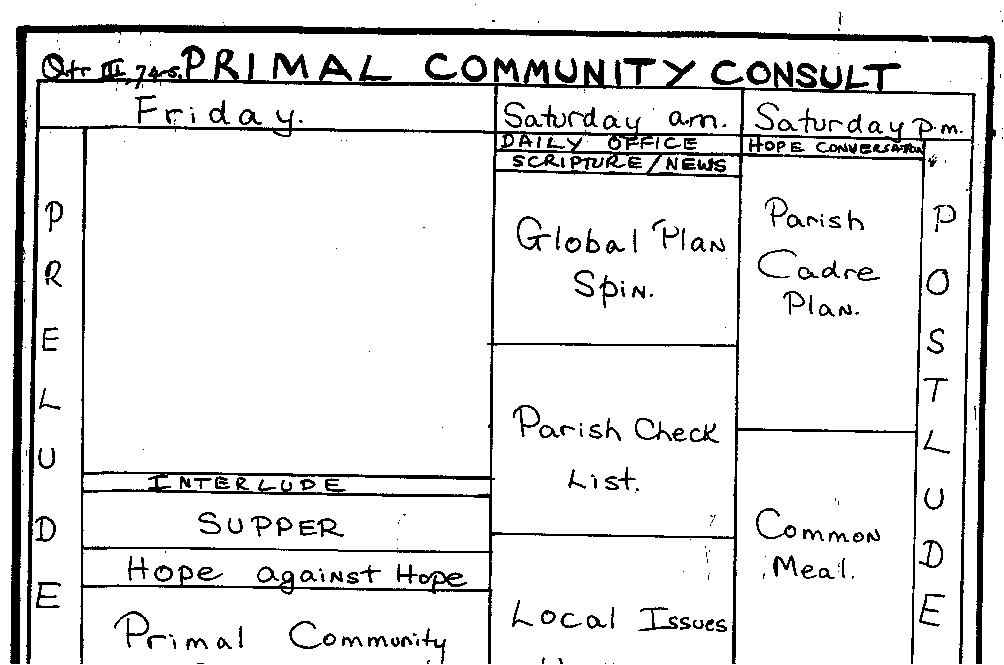 Qtr III, 74-5. PRIMAL COMMUNITY CONSULT
Friday.
Saturday a.m.
Saturday p.m.
PRELUDE
INTERLUDE
SUPPER
Hope against Hope
Primal Community
DAILY OFFICE
SCRIPTURE/NEWS
Global Plan
Spin.
Parish Check
List.
Local Issues
HOPE CONVERSATION
Parish
Cadre
Plan.
Common
Meal.
POSTLUDE